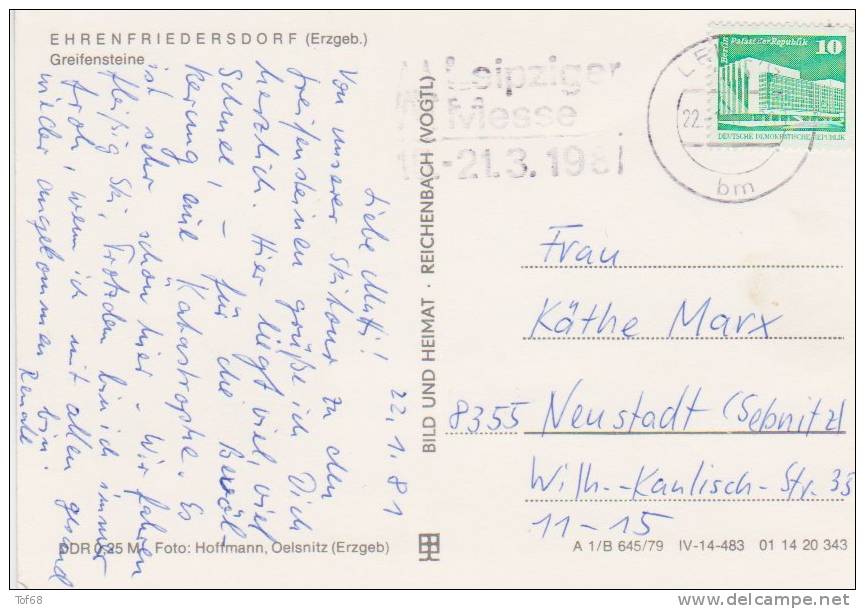 EHRENFRIEDERSDORF (Erzgeb.)
Greifensteine
22.1.81
Liebe Mutti!
Von unserer Skitour zu den
Greifensteinen grüße ich Dich
herzlich. Hier liegt viel, viel
Schnee, – für die Bevöl-
kerung eine Katastrophe. Es
ist sehr schön hier – wir fahren
fleißig Ski. Trotzdem bin ich immer
froh, wenn ich mit allen gesund
wieder angekommen bin.
Renate
DDR 0,25 M Foto: Hoffmann, Oelsnitz (Erzgeb)
BILD UND HEIMAT · REICHENBACH (VOGTL)
Leipziger
Messe
-21.3.1981
22.
bm
Berlin Palast der Republik 10
DEUTSCHE DEMOKRATISCHE REPUBLIK
Frau
Käthe Marx
8355 Neustadt (Sebnitz)
Wilh.-Kaulisch-Str. 33
11-15
A 1/B 645/79 IV-14-483 01 14 20 343
Tof68